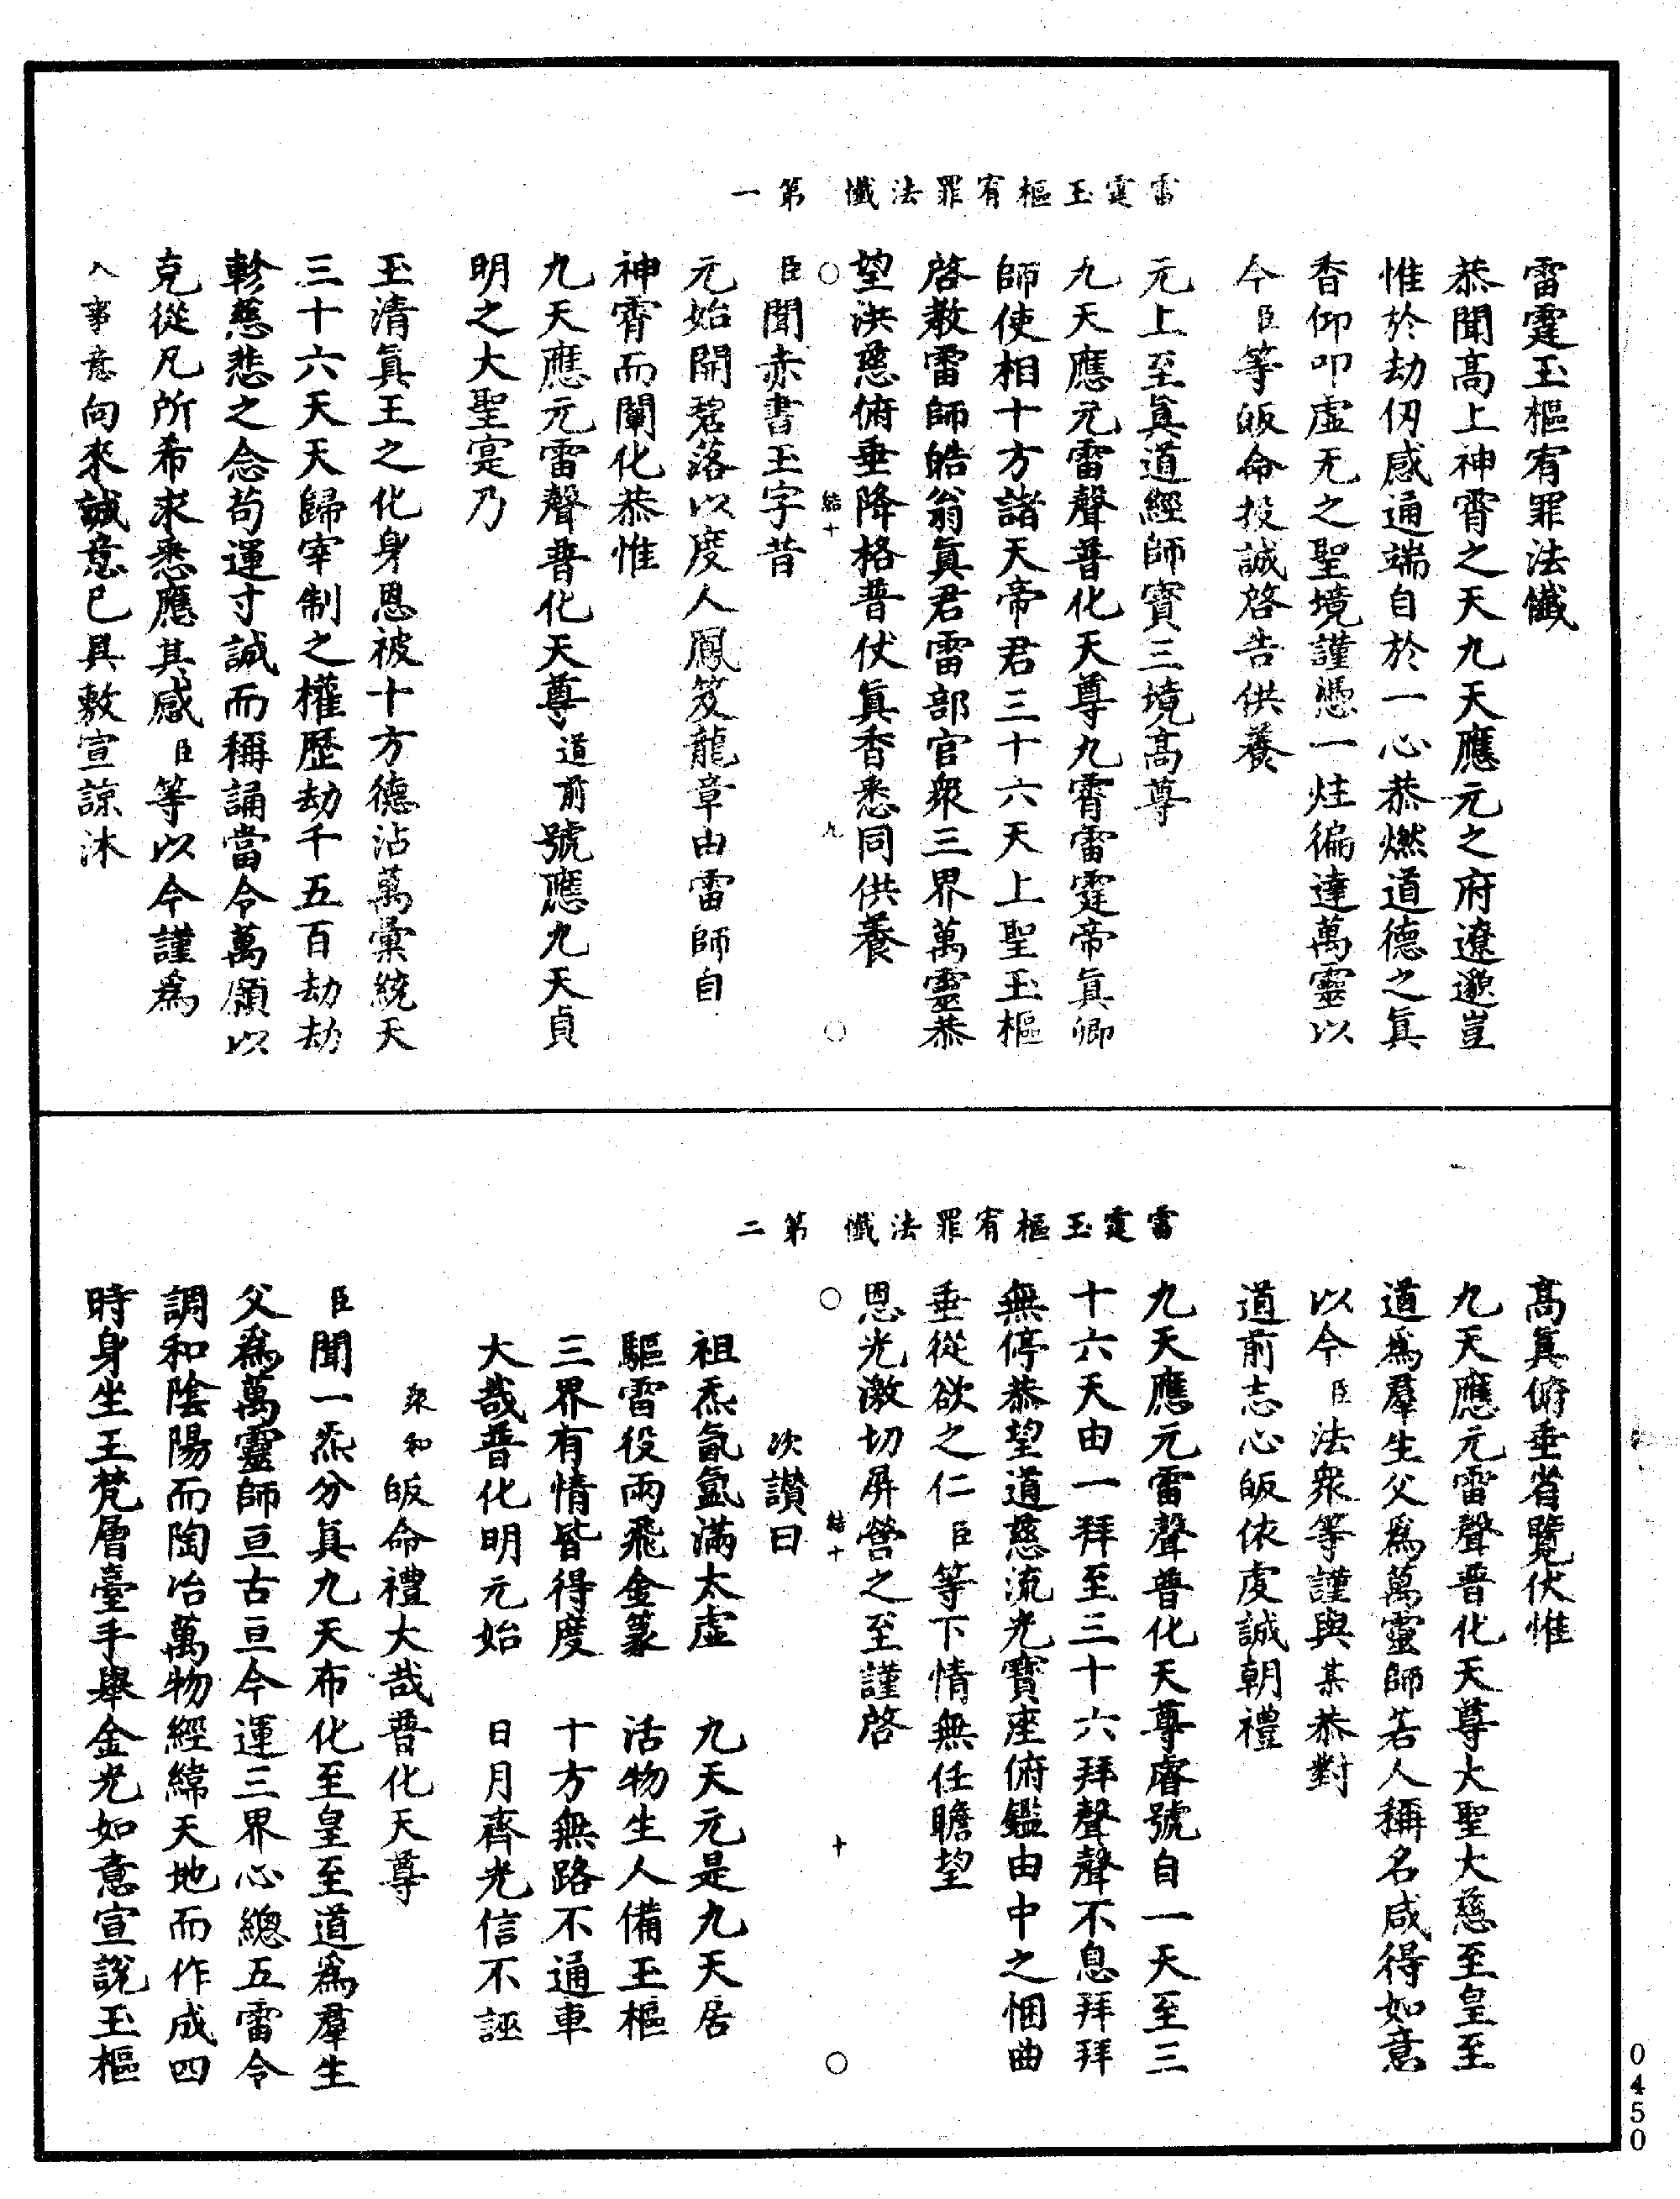 雷霆玉樞宥罪法懺　第一
雷霆玉樞宥罪法懺
恭聞高上神霄之天九天應元之府遼邈豈
惟於劫仞感通端自於一心恭燃道德之眞
香仰叩虛无之聖境謹憑一炷徧達萬靈以
今臣等皈命投誠啓告供養
元上至眞道經師寶三境高尊
九天應元雷聲普化天尊九霄雷霆帝眞卿
師使相十方諸天帝君三十六天上聖玉樞
啓教雷師皓翁眞君雷部官衆三界萬靈恭
望洪慈俯垂降格普伏眞香悉同供養
結十　九
臣聞赤書玉字昔
元始開碧落以度人鳳笈龍章由雷師自
神霄而闡化恭惟
九天應元雷聲普化天尊道前號應九天貞
明之大聖寔乃
玉清眞王之化身恩被十方德沾萬彙統天
三十六天天歸宰制之權歷劫千五百劫劫
軫慈悲之念苟運寸誠而稱誦當令萬願以
克從凡所希求悉應其感臣等以今謹爲
入事意向來誠意已具敷宣諒沐
雷霆玉樞宥罪法懺　第二
高眞俯垂省覽伏惟
九天應元雷聲普化天尊大聖大慈至皇至
道爲羣生父爲萬靈師若人稱名咸得如意
以今臣法衆等謹與某恭對
道前志心皈依虔誠朝禮
九天應元雷聲普化天尊睿號自一天至三
十六天由一拜至三十六拜聲聲不息拜拜
無停恭望道慈流光寶座俯鑑由中之悃曲
垂從欲之仁臣等下情無任瞻望
恩光激切屏營之至謹啓
結十　十
次讚曰
祖炁氤氳滿太虛　九天元是九天居
驅雷役雨飛金篆　活物生人備玉樞
三界有情皆得度　十方無路不通車
大哉普化明元始　日月齊光信不誣
衆和皈命禮大哉普化天尊
臣聞一炁分眞九天布化至皇至道爲羣生
父爲萬靈師亘古亘今運三界心總五雷令
調和陰陽而陶冶萬物經緯天地而作成四
時身坐玉梵層臺手舉金光如意宣說玉樞
0450